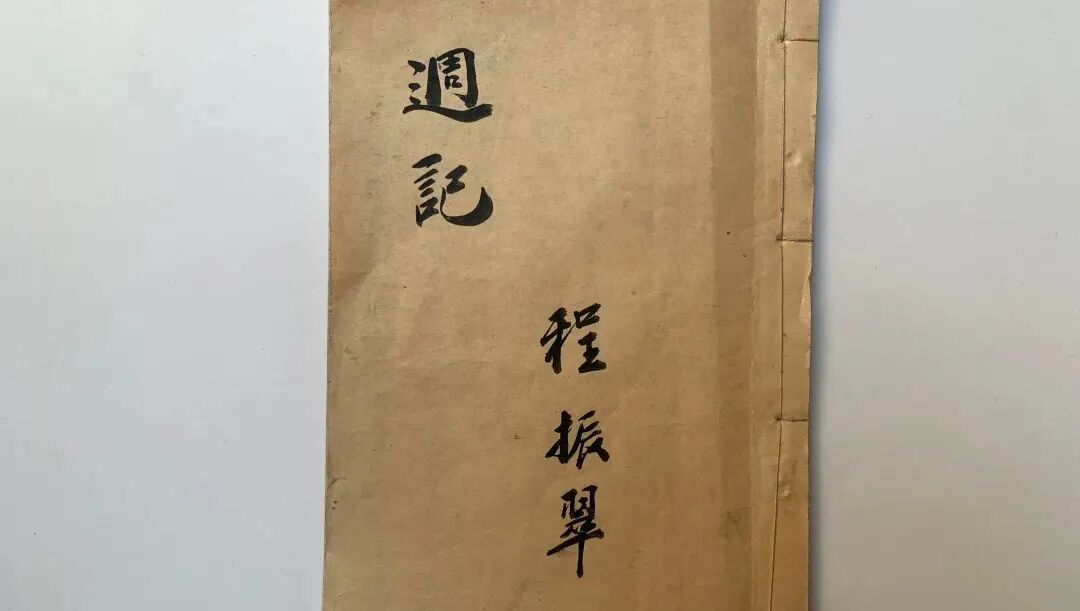 週記
程振翠